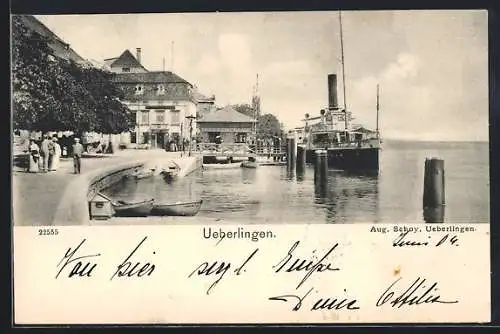 22555
Ueberlingen.
Aug. Schoy, Ueberlingen.
Juni 04.
Von hier herzl. Grüße
Deine Ottilie